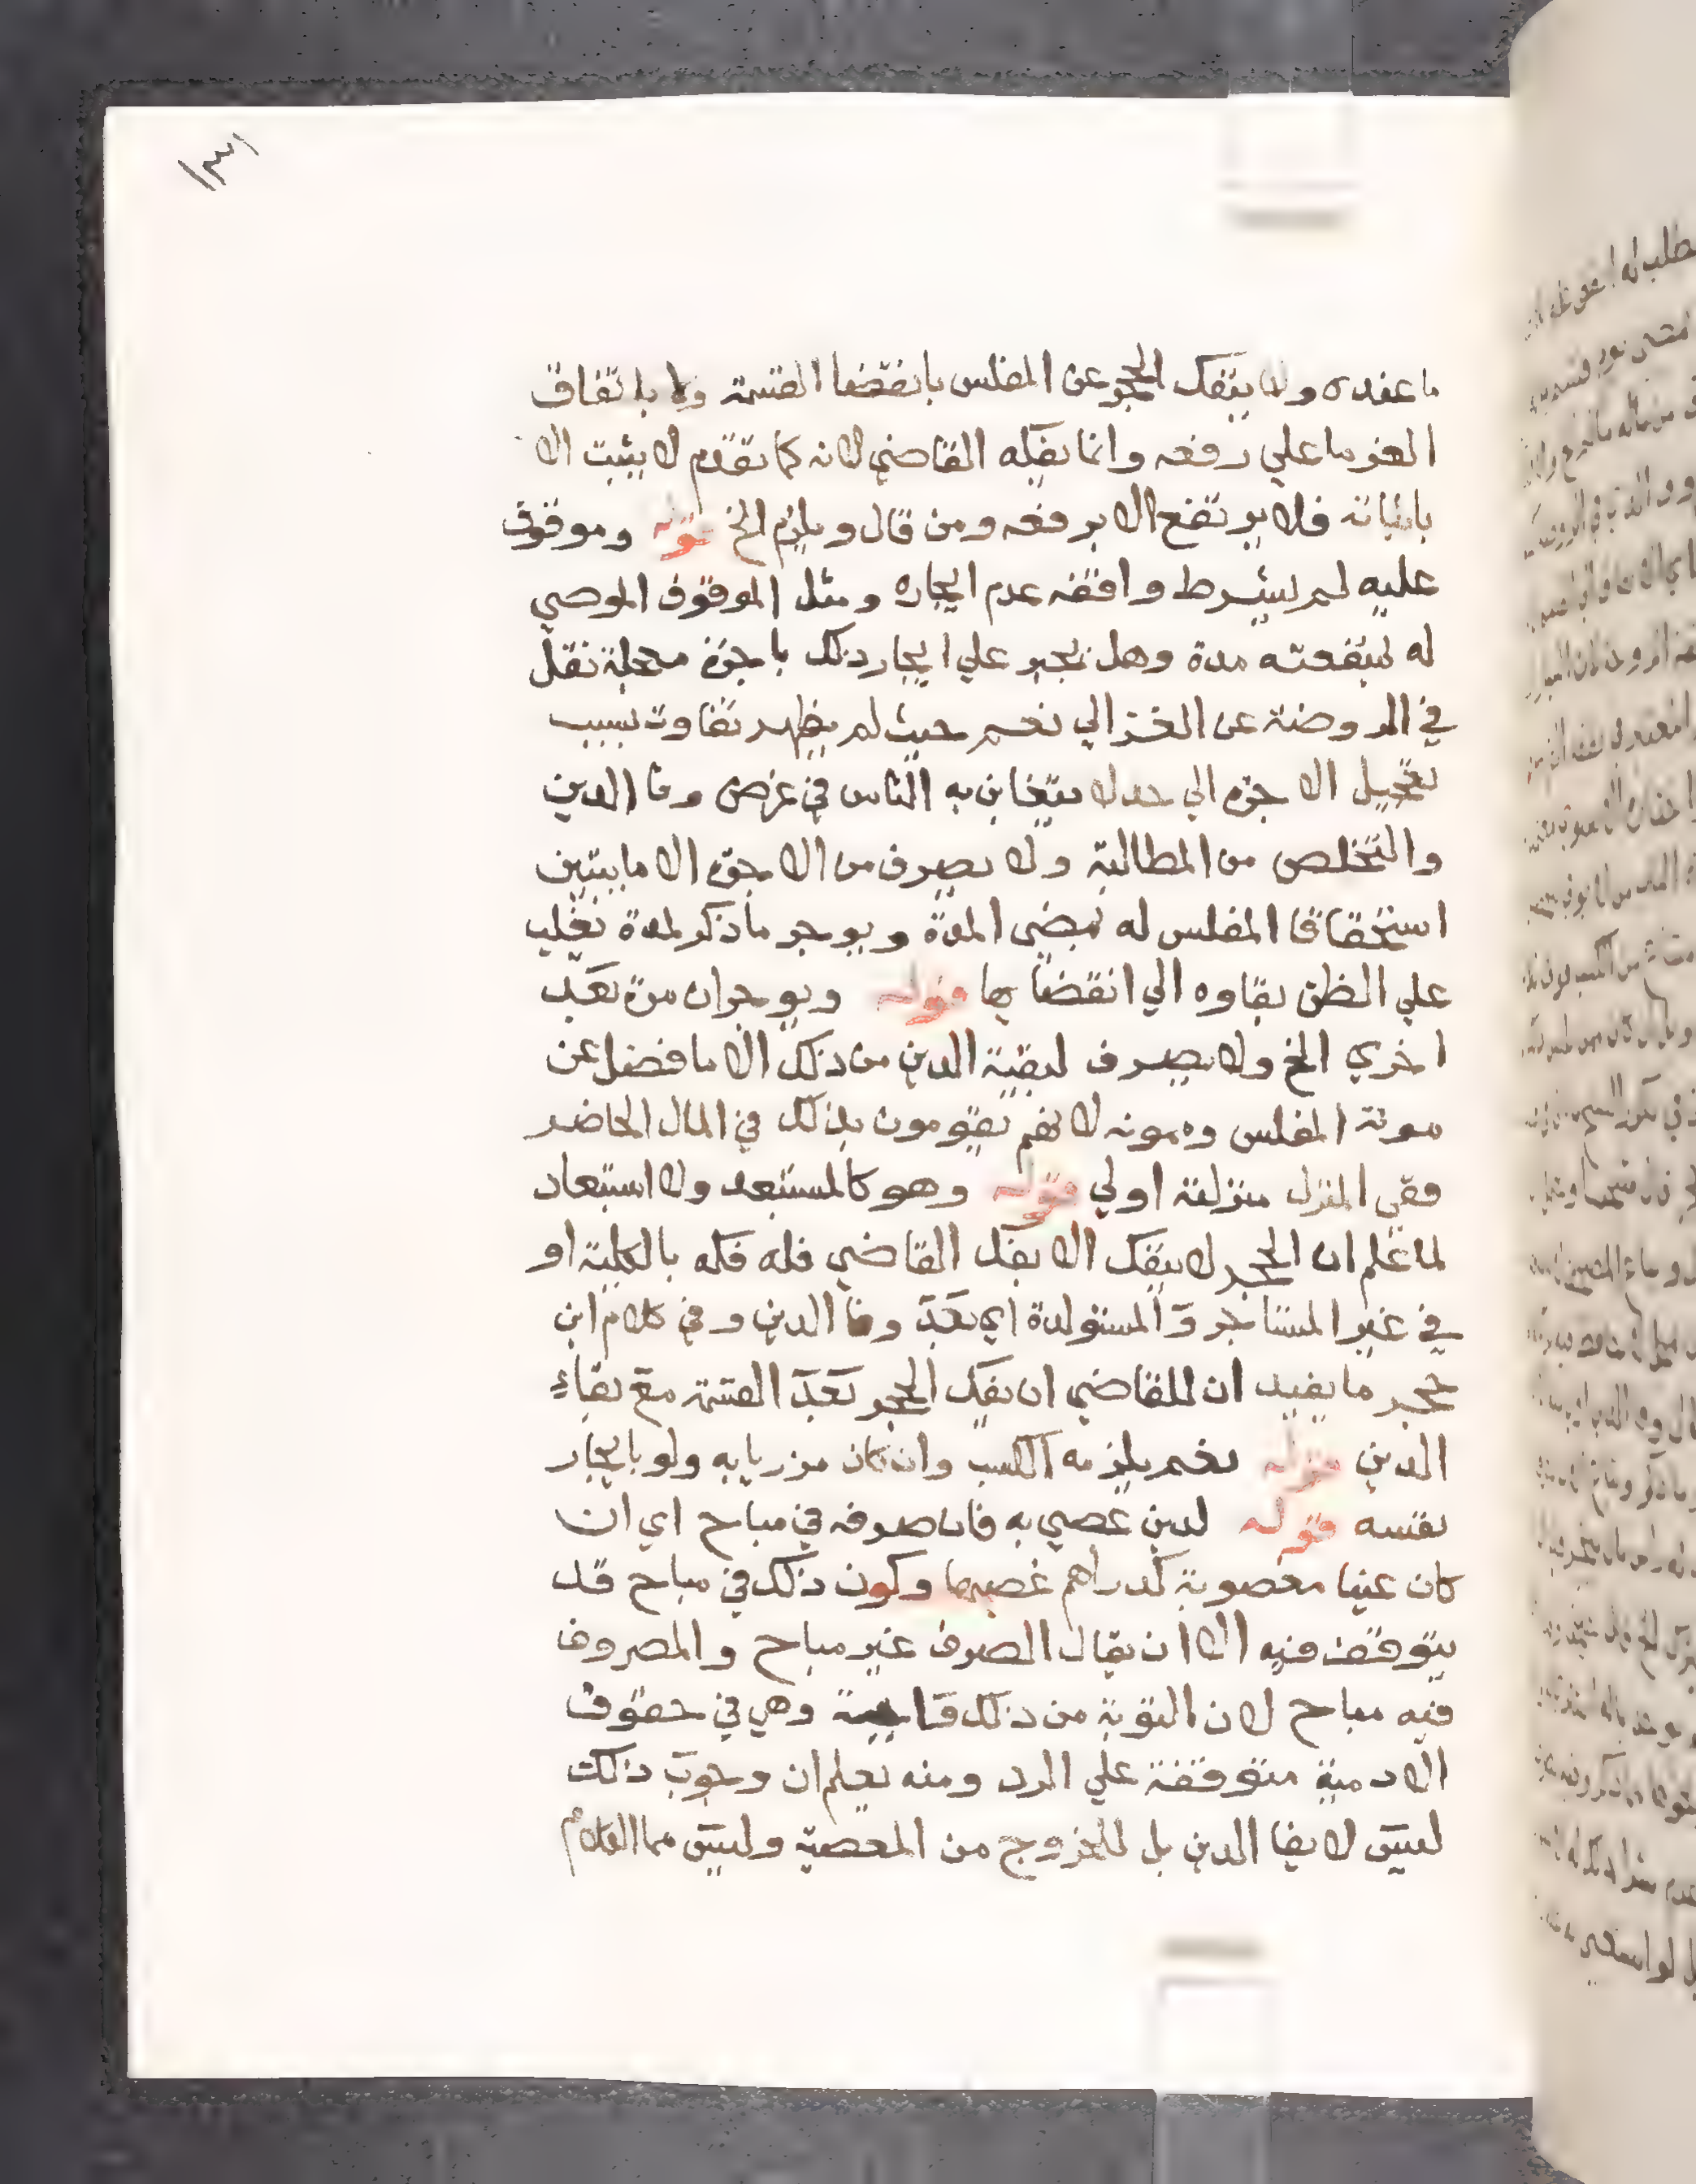 ١٣١
ما عنده ولا ينفك الحجر عن المفلس بانقضا القسمة ولا باتفاق
الغرما على رفعه وانما يفكه القاضي لانه كما تقدم لا يثبت الا
باثباته فلا يرتفع الا برفعه ومن قال ويلزم الخ قوله وموقوف
عليه لم يشرط واقفه عدم ايجاره ومثل الموقوف الموصي
له بمنفعته مدة وهل يجبر علي ايجار ذلك باجرة معجلة نقل
في الروضة عن الغزالي نعم حيث لم يظهر تفاوت بسبب
تعجيل الاجرة الي حد لا يتغابن به الناس في غرض وفا الدين
والتخلص من المطالبة ولا يصرف من الاجرة الا ما يتبين
استحقاق المفلس له بمضي المدة ويوجر ما ذكر لمدة يغلب
علي الظن بقاوه الي انقضايها قوله ويوجران مرة بعد
اخري الخ ولا يصرف لبقية الدين من ذلك الا ما فضل عن
مونة المفلس وممونه لانهم يقومون بذلك في المال الحاضر
ففي المنزل منزلته اولي قوله وهو كالمستبعد ولا استبعاد
لما علم ان الحجر لا ينفك الا بفك القاضي فله فكه بالكلية او
في غير المستاجر والمستولدة اي بعد وفا الدين وفي كلام ابن
حجر ما يفيد ان للقاضي ان يفك الحجر بعد القسمة مع بقاء
الدين قوله نعم يلزمه الكسب وان كان مزريا به ولو بايجار
نفسه قوله لدين عصي به فان صرفه في مباح اي ان
كان عينا مغصوبة كدراهم غصبها وكون ذلك في مباح قد
يتوقف فيه الا ان يقال الصرف غير مباح والمصروف
فيه مباح لان التوبة من ذلك وهي في حقوق
الادمية متوقفة علي الرد ومنه يعلم ان وجوب ذلك
ليس لايفا الدين بل للخروج من المعصية وليس مما الكلام